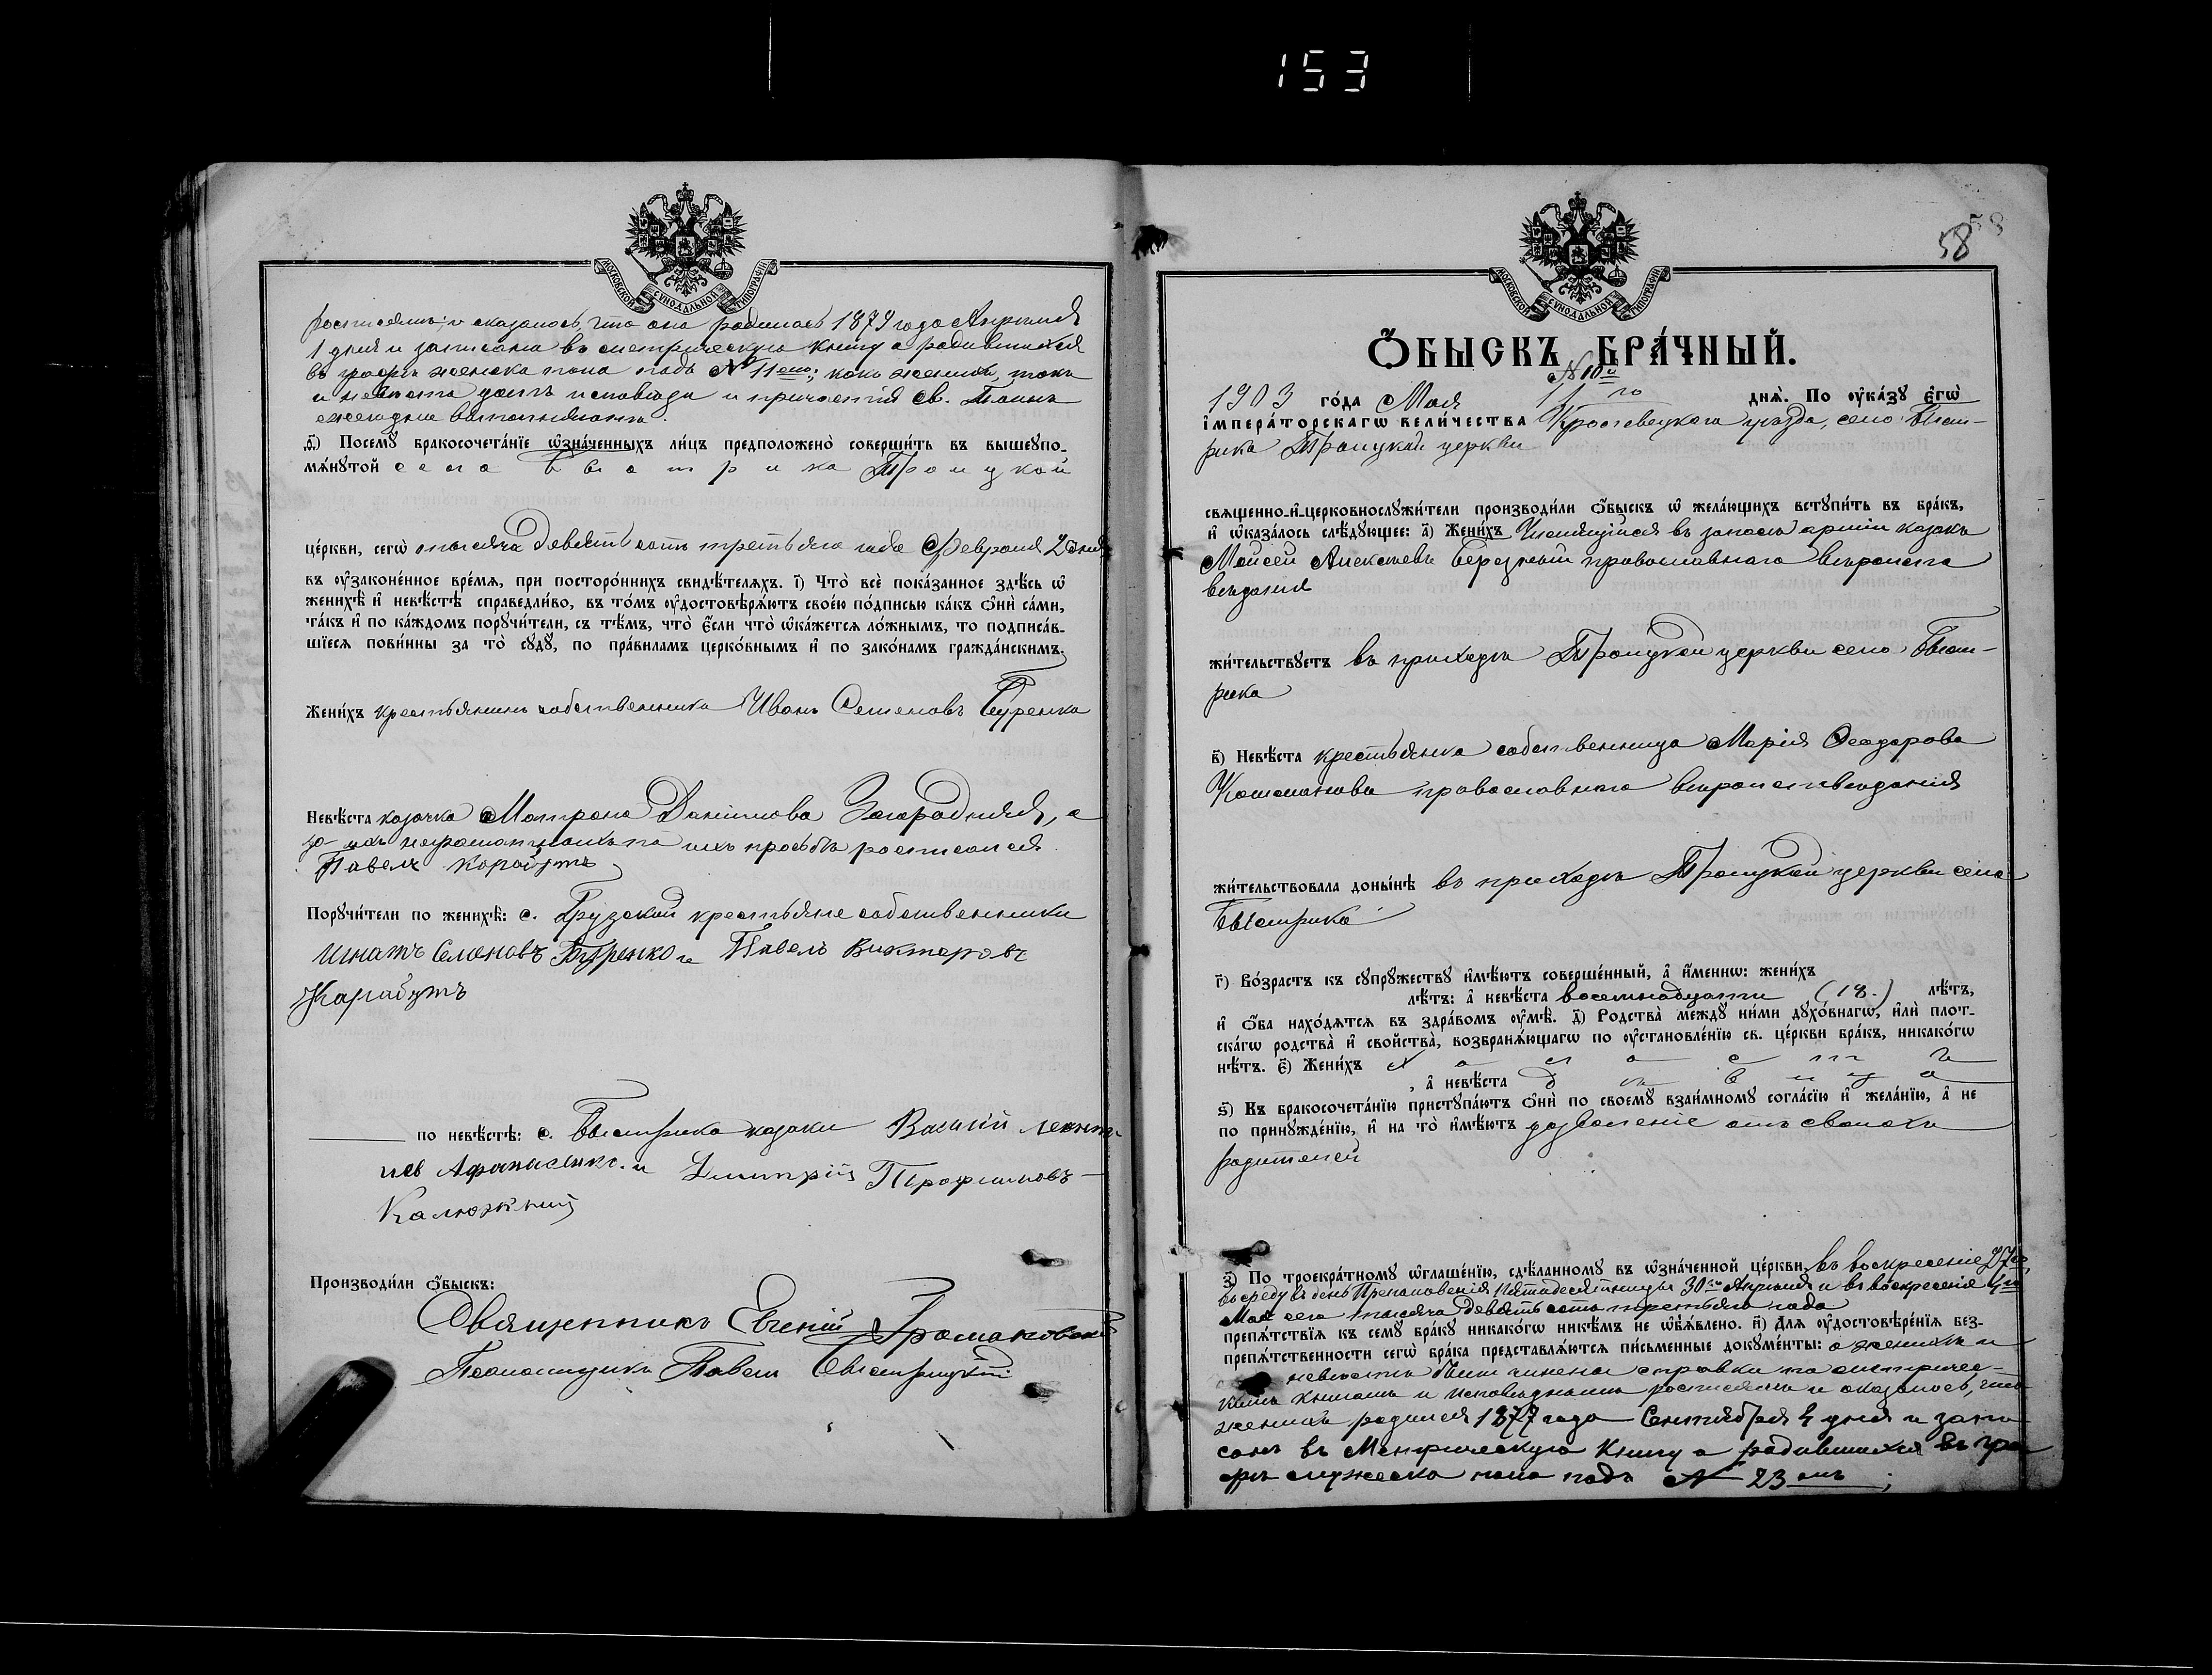 153
МОСКОВСКОЙ СѴНОДАЛЬНОЙ ТИПОГРАФІИ
росписямъ; и оказалось, что она родилась 1879 года Апрѣля
1 дня и записана въ метрическую книгу о родившихся
въ графѣ женска пола подъ № 11ымъ; какъ женихъ, такъ
и невѣста долгъ исповѣди и причастія Св. Таинъ
ежегодно выполняютъ.
ѳ҃) Посемꙋ бракосочета́нїе ѡзна́ченныхъ ли́цъ предположено̀ соверши́ть въ вышеꙋпо-
мѧ́нꙋтой села Быстрика Троицкой
це́ркви, сегѡ̀ тысяча девятьсотъ третьяго года Февраля 2 дня
въ ᲂу҆зако́ненное вре́мѧ, при посторо́ннихъ свидѣ́телѧхъ. і҃) Что̀ всѐ пока́занное здѣ́сь ѡ҆
женихѣ̀ и҆ невѣ́стѣ справедли́во, въ то́мъ ᲂу҆достовѣрѧ́ютъ свое́ю по́дписью ка́къ ѻ҆нѝ са́ми,
та́къ и҆ по ка́ждомъ порꙋчи́тели, съ тѣ́мъ, что̀ є҆́сли что̀ ѡ҆ка́жетсѧ ло́жнымъ, то подписа́в-
шїесѧ пови́нны за то̀ сꙋдꙋ̀, по пра́виламъ церко́внымъ и҆ по зако́намъ гражда́нскимъ.
Жени́хъ крестьянинъ собственникъ Иванъ Семеновъ Буренко
Невѣ́ста козачка Матрона Даніилова Загородняя, а
за нихъ неграмотныхъ по ихъ просьбѣ росписался
Павелъ Карабутъ
Порꙋчи́тели по женихѣ̀: с. Грузской крестьяне собственники
Игнатъ Семеновъ Буренко и Павелъ Викторовъ
Карабутъ
по невѣ́стѣ: с. Быстрика козаки Василій Леонть
иев Афанасенко и Дмитрій Трофимовъ
Калюжный
Производи́ли ѻ҆́быскъ:
Священникъ Евгеній Громаковскій
Псаломщикъ Павелъ Быстрицкій
58
58
МОСКОВСКОЙ СѴНОДАЛЬНОЙ ТИПОГРАФІИ
Ѻ҆́БЫСКЪ БРА́ЧНЫЙ.
№ 10й
1903 го́да Мая 11го днѧ̀. По ᲂу҆ка́зꙋ є҆гѡ̀
і҆мпера́торскагѡ вели́чества Кролевецкаго уѣзда, села Быст-
рика Троицкой церкви
свѧщенно-и҆-церковнослꙋжи́тели производи́ли ѻ҆́быскъ ѡ҆ жела́ющихъ встꙋпи́ть въ бра́къ,
и҆ ѡ҆каза́лось слѣ́дꙋющее: а҃) Жени́хъ Числящійся въ запасѣ арміи казакъ
Моисей Алексѣевъ Березный православнаго вѣроиспо
вѣданія
жи́тельствꙋетъ въ приходѣ Троицкой церкви села Быст-
рика
в҃) Невѣ́ста крестьянка собственница Марія Ѳеодорова
православнаго вѣроисповѣданія
жи́тельствовала доны́нѣ въ приходѣ Троицкой церкви села
Быстрика
г҃) Во́зрастъ къ сꙋпрꙋ́жествꙋ и҆мѣ́ютъ соверше́нный, а҆ и҆́меннѡ: жени́хъ
лѣ́тъ: а҆ невѣ́ста восемнадцати (18.) лѣ́тъ,
и҆ ѻ҆́ба нахо́дѧтсѧ въ здра́вомъ ᲂу҆мѣ̀. д҃) Родства̀ ме́ждꙋ ни́ми дꙋхо́внагѡ, и҆лѝ плот-
ска́гѡ родства̀ и҆ сво́йства, возбранѧ́ющагѡ по ᲂу҆становле́нїю св. це́ркви бра́къ, никако́гѡ
нѣ́тъ. є҃) Жени́хъ холостъ
, а҆ невѣ́ста дѣвица
ѕ҃) Къ бракосочета́нїю пристꙋпа́ютъ ѻ҆нѝ по своемꙋ̀ взаи́мномꙋ согла́сїю и҆ жела́нїю, а҆ не
по принꙋжде́нїю, и҆ на то̀ и҆мѣ́ютъ дозволеніе отъ своихъ
родителей
з҃) По троекра́тномꙋ ѡ҆глаше́нїю, сдѣ́ланномꙋ въ ѡ҆зна́ченной це́ркви, въ воскресеніе 27го,
въ среду въ день Преполовенія Пятидесятницы 30го Апрѣля и въ воскресеніе 4го
Мая сего тысяча девятьсотъ третьяго года
препѧ́тствїѧ къ семꙋ̀ бра́кꙋ никако́гѡ никѣ́мъ не ѡ҆б̾ѧ́влено. и҃) Длѧ ᲂу҆достовѣре́нїѧ без-
препѧ́тственности сегѡ̀ бра́ка представлѧ́ютсѧ пи́сьменные докꙋме́нты: о женихѣ и
невѣстѣ были чинены справки по метричес-
кимъ книгамъ и исповѣднымъ росписямъ и оказалось, что
женихъ родился 1877 года Сентября 4 дня и запи
санъ въ Метрическую Книгу о родившихся въ гра
фѣ мужеска пола подъ № 23мъ;